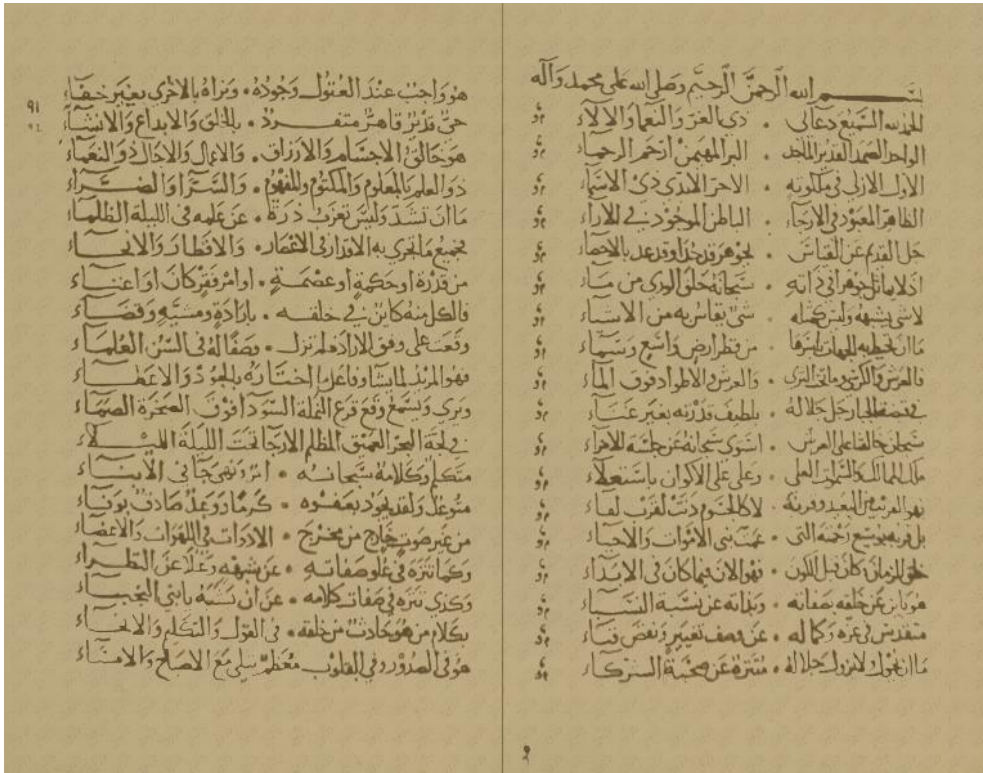 بسم الله الرحمن الرحيم وصلى الله على محمد وآله
الحمد لله السميع دعائى • ذي العز والنعماء والالاء
الواحد الصمد القدير الماجد • البر المهيمن ارحم الرحماء
الاول الازلى فى ملكوته • الاخر الابدي ذى الاسماء
الظاهر المعبود فى الارجاء • الباطن الموجود فى الاراء
جل القديم عن القياس • بجوهر قد حد او قد عد بالاحصاء
اذ لا يماثل جوهرا فى ذاته • سبحانه خلق الورى من ماء
لا شى يشبهه وليس كمثله • شى يقاس به من الاشياء
ما ان تحيط به الجهات باسرها • من قطر ارض واسع وسماء
فالعرش والكرسى وما تحت الثرى • والعرش والاطواد فوق الماء
فى قبضة الجبار جل جلاله • بلطيف قدرته بغير عناء
سبحان خالقنا على العرش • استوى سبحانه عن جلسة
ملك الممالك والسموات العلى • وعلى على الاكوان باستعلاء
فهو القريب من البعيد وقربه • لا كالجسوم دنت لقرب لقاء
بل قربه بوسيع رحمته التى • عمت بنى الاموات والاحياء
خلق الزمان وكان قبل الكون • فهو الان فيما كان فى الابداء
هو باين عن خلقه بصفاته • وبذاته عن نسبة النسباء
متقدس فى عزه وكماله • عن وصف تغيير ونقص فناء
ما ان يحول لا يزول جلاله • متنزه عن صحبة الشركاء
هو واجب عند العقول وجوده • ونراه بالاخرى بغير خفاء
حى قدير قاهر متفرد • بالخلق والابداع والانشاء
هو خالق الاجسام والارزاق • والاعمال والاجال ذو النعماء
ذو العلم بالمعلوم والمكتوم والمفهوم • والسراء والضراء
ما ان تشذ وليس تعزب ذرة • عن علمه فى الليلة الظلماء
بجميع ما تجري به الاقدار فى الاعصار • والاقطار والانحاء
من قدرة او حكمة او عصمة • او امر فقر كان او اغناء
فالكل منه كاين فى خلقه • بارادة ومشية وقضاء
وقعت على وفق الارادة لم تزل • وصفا له فى السن العلماء
فهو المريد لما يشا وفاعل ما اختاره بالجود والاعطاء
ويرى ويسمع وقع قرع النملة السودا فوق الصخرة الصماء
فى لجة البحر العميق المظلم الارجا تحت الليلة الليلاء
متكلم وكلامه سبحانه • امر ونهى جا فى الانباء
متوعد ولقد يجود بعفوه • كرما ووعد صادق بوفاء
من غير صوت خارج من مخرج • الادوات فى اللهوات والاعضاء
وكما تنزه فى علو صفاته • عن شبهه وعلا عن النظراء
وكذى تنزه فى صفات كلامه • عن ان نشبهه
بكلام من هو حادث من خلقه • فى القول والتكلم والايحاء
هو فى الصدور وفى القلوب معظم يتلى مع الاصباح والامساء
٩١